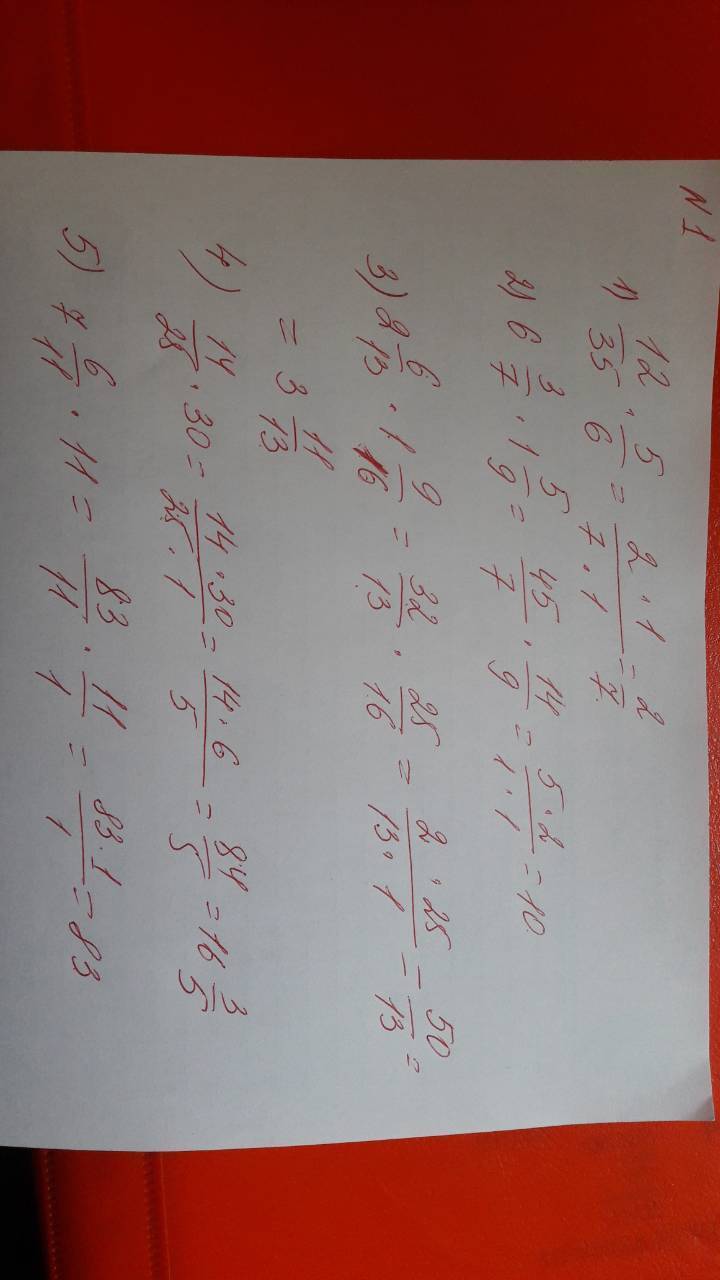 N 1
1) 12/35 · 5/6 = 2 · 1/7 · 1 = 2/7
2) 6 3/7 · 1 5/9 = 45/7 · 14/9 = 5 · 2/1 · 1 = 10
3) 2 6/13 · 1 9/16 = 32/13 · 25/16 = 2 · 25/13 · 1 = 50/13 =
= 3 11/13
4) 14/25 · 30 = 14 · 30/25 · 1 = 14 · 6/5 = 84/5 = 16 3/5
5) 7 6/11 · 11 = 83/11 · 11/1 = 83 · 1/1 = 83